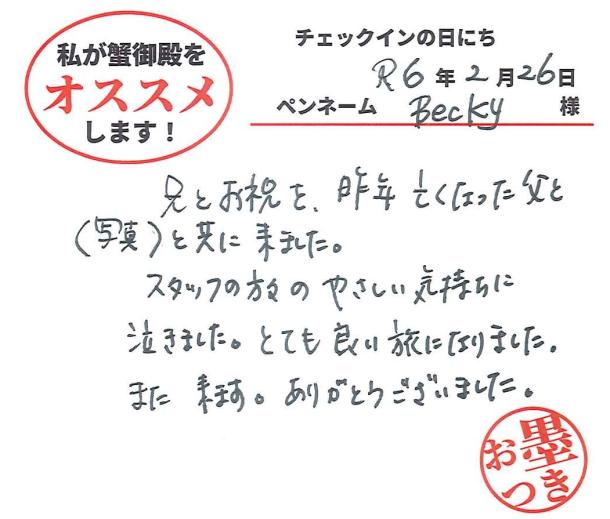 私が蟹御殿を
オススメ
します！
チェックインの日にち
R6年2月26日
ペンネーム Becky 様
兄とお祝を、昨年亡くなった父と
（写真）と共に来ました。
スタッフの方のやさしい気持ちに
泣きました。とても良い旅になりました。
また来ます。ありがとうございました。
お墨つき